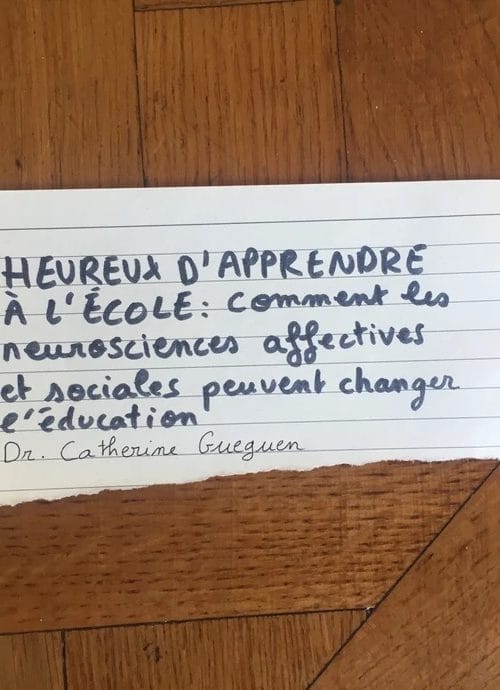 HEUREUX D'APPRENDRE
À L'ÉCOLE : comment les
neurosciences affectives
et sociales peuvent changer
l'éducation
Dr. Catherine Gueguen